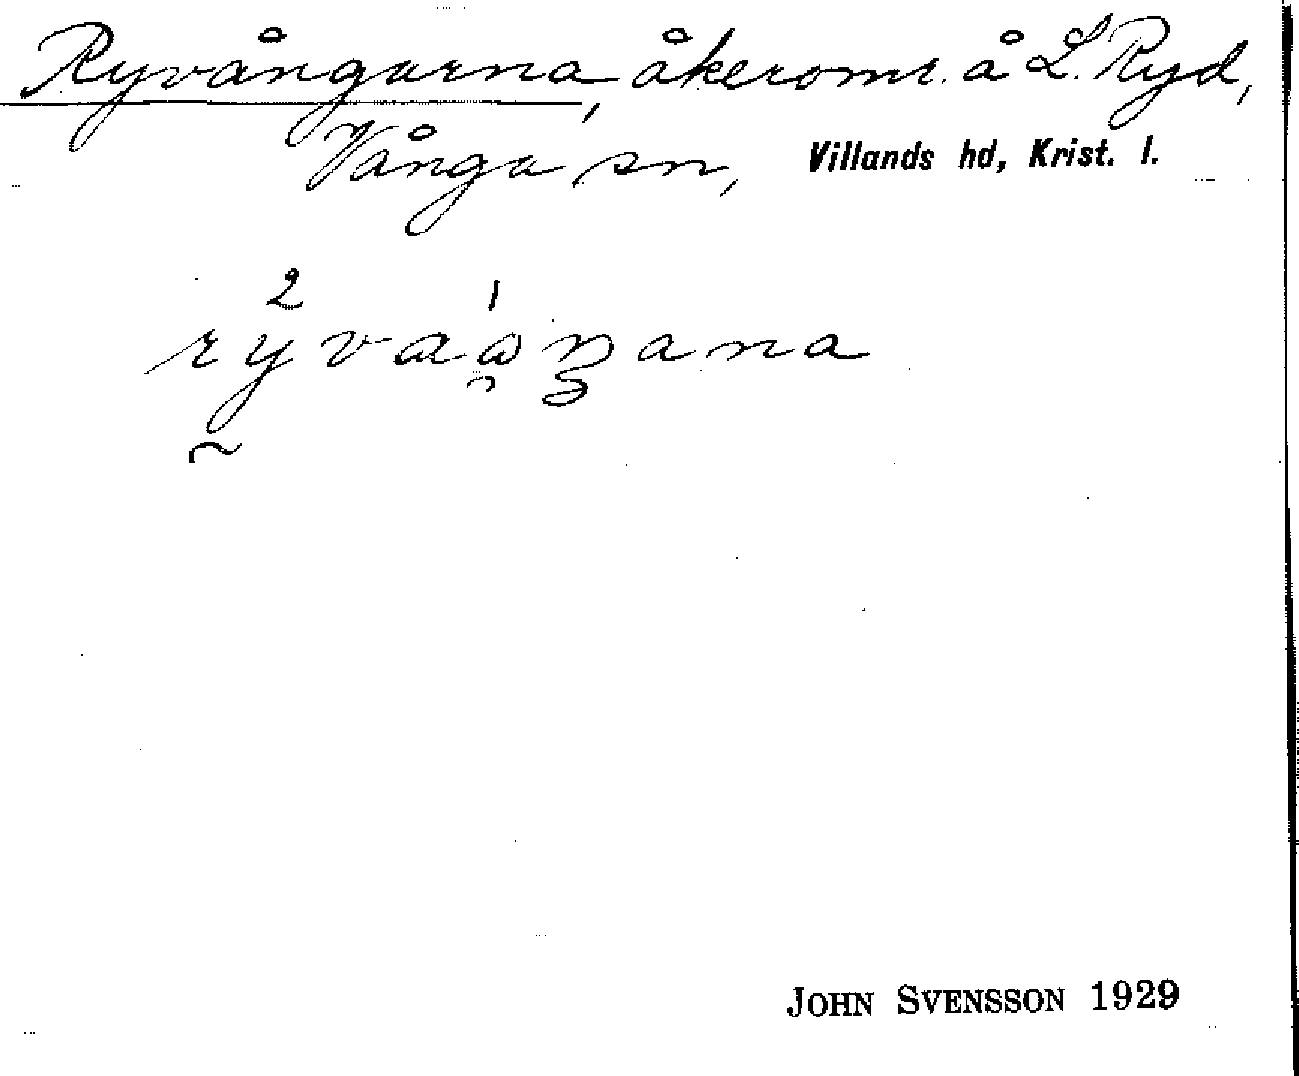 Ryvångarna, åkeromr. å L. Ryd,
Vånga sn, Villands hd, Krist. l.
JOHN SVENSSON 1929